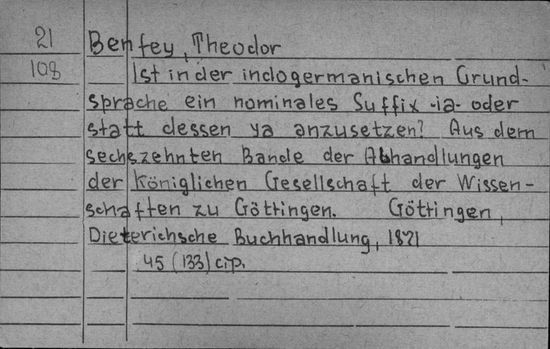 21
108
Benfey, Theodor
Ist in der indogermanischen Grund-
sprache ein nominales Suffix -ia- oder
statt dessen ya anzusetzen? Aus dem
sechszehnten Bande der Abhandlungen
der Königlichen Gesellschaft der Wissen-
schaften zu Göttingen. Göttingen,
Dieterichsche Buchhandlung, 1871
45 (133) стр.